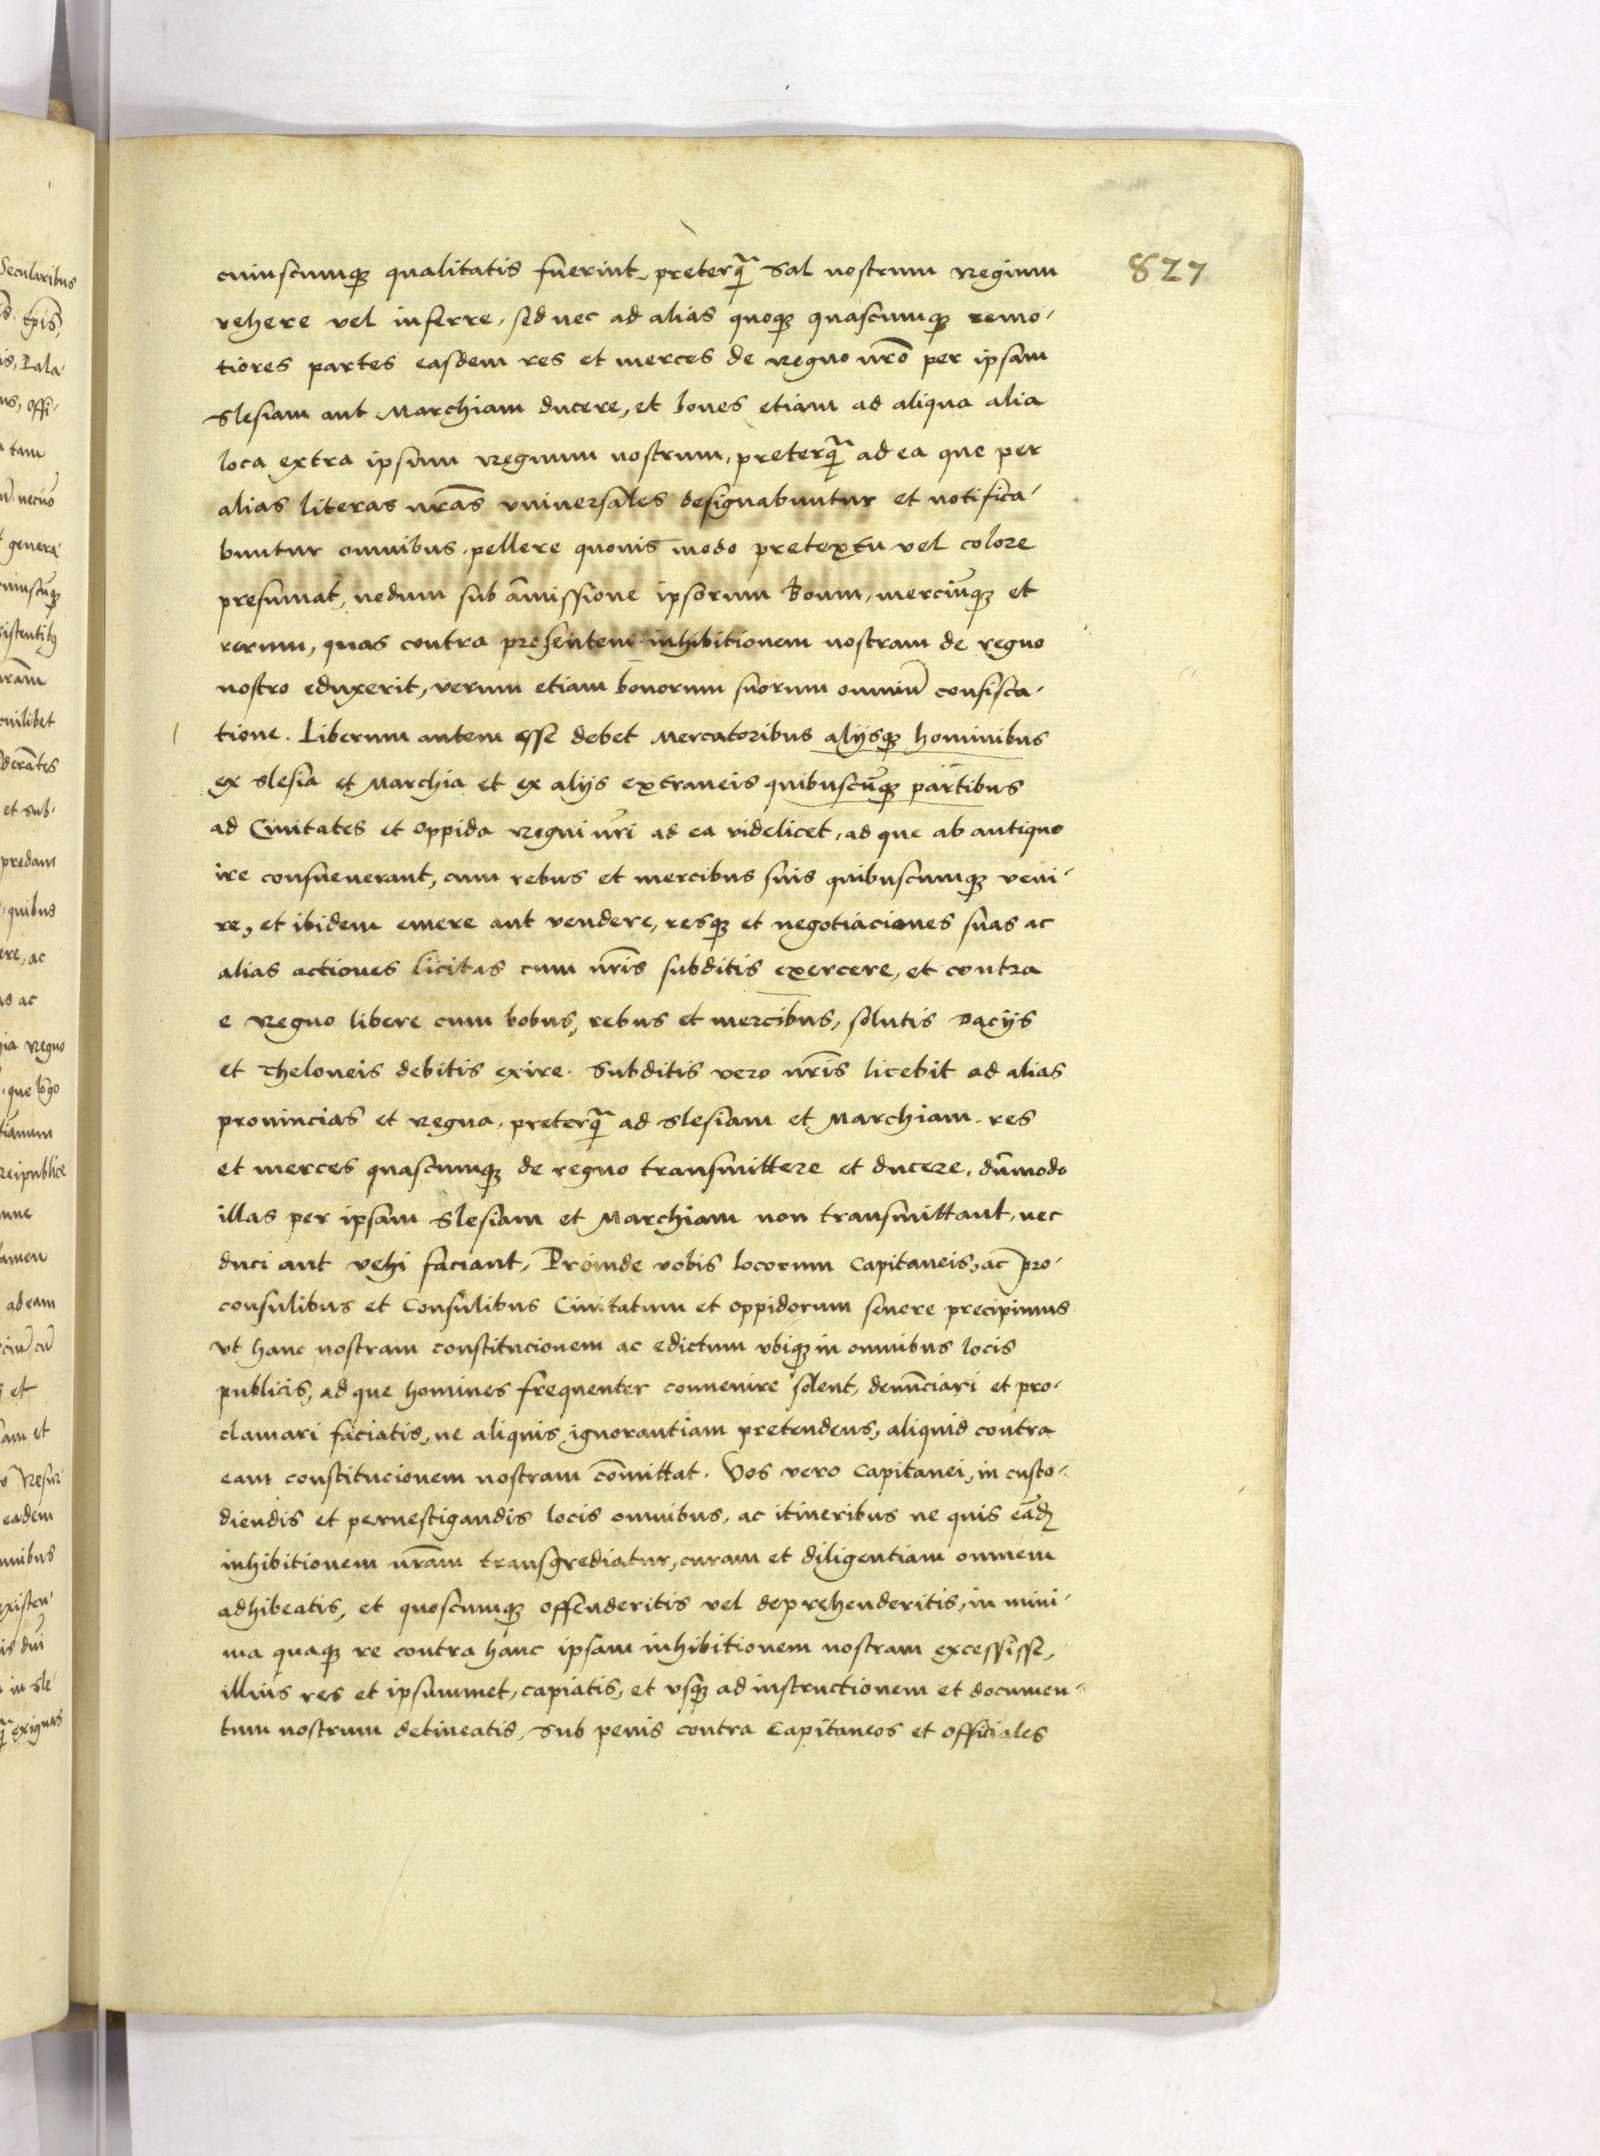 827
cuiuscumqꝫ qualitatis fuerint, preterq̃ Sal nostrum Regium
vehere vel inferre, sed nec ad alias quoqꝫ quascumqꝫ remo-
tiores partes easdem res et merces de Regno nr̃o per ipsam
Slesiam aut Marchiam ducere, et boues etiam ad aliqua alia
loca extra ipsum Regnum nostrum, preterq̃ ad ea que per
alias literas nr̃as vniuersales designabuntur et notifica-
buntur omnibus, pellere quouis modo pretextu vel colore
presumat, nedum sub amissione ipsorum Boum, merciũqꝫ et
rerum, quas contra presentem inhibitionem nostram de regno
nostro eduxerit, verum etiam bonorum suorum omniũ confisca-
tione. Liberum autem esse debet Mercatoribus alijsqꝫ hominibus
ex Slesia et Marchia et ex alijs extraneis quibuscũqꝫ partibus
ad Ciuitates et Oppida Regni nr̃i ad ea videlicet, ad que ab antiquo
ire consueuerant, cum rebus et mercibus suis quibuscumqꝫ veni-
re, et ibidem emere aut vendere, resqꝫ et negotiaciones suas ac
alias actiones licitas cum nr̃is subditis exercere, et contra
e Regno libere cum bobus, rebus et mercibus, solutis Dacijs
et Theloneis debitis exire. Subditis vero nr̃is licebit ad alias
prouincias et Regna, preterq̃ ad Slesiam et Marchiam, res
et merces quascumqꝫ de regno transmittere et ducere, dũmodo
illas per ipsam Slesiam et Marchiam non transmittant, nec
duci aut vehi faciant, Proinde vobis locorum Capitaneis, ac pro-
consulibus et Consulibus Ciuitatum et oppidorum seuere precipimus
vt hanc nostram constitucionem ac edictum vbiqꝫ in omnibus locis
publicis, ad que homines frequenter conuenire solent, denũciari et pro-
clamari faciatis, ne aliquis ignorantiam pretendens, aliquid contra
eam constitucionem nostram com̃ittat. Vos vero Capitanei, in custo-
diendis et peruestigandis locis omnibus, ac itineribus ne quis eãdꝫ
inhibitionem nr̃am transgrediatur, curam et diligentiam omnem
adhibeatis, et quoscumqꝫ offenderitis vel deprehenderitis, in mini-
ma quaqꝫ re contra hanc ipsam inhibitionem nostram excessisse,
illius res et ipsummet, capiatis, et vsqꝫ ad instructionem et documen-
tum nostrum detineatis, Sub penis contra Capitaneos et officiales